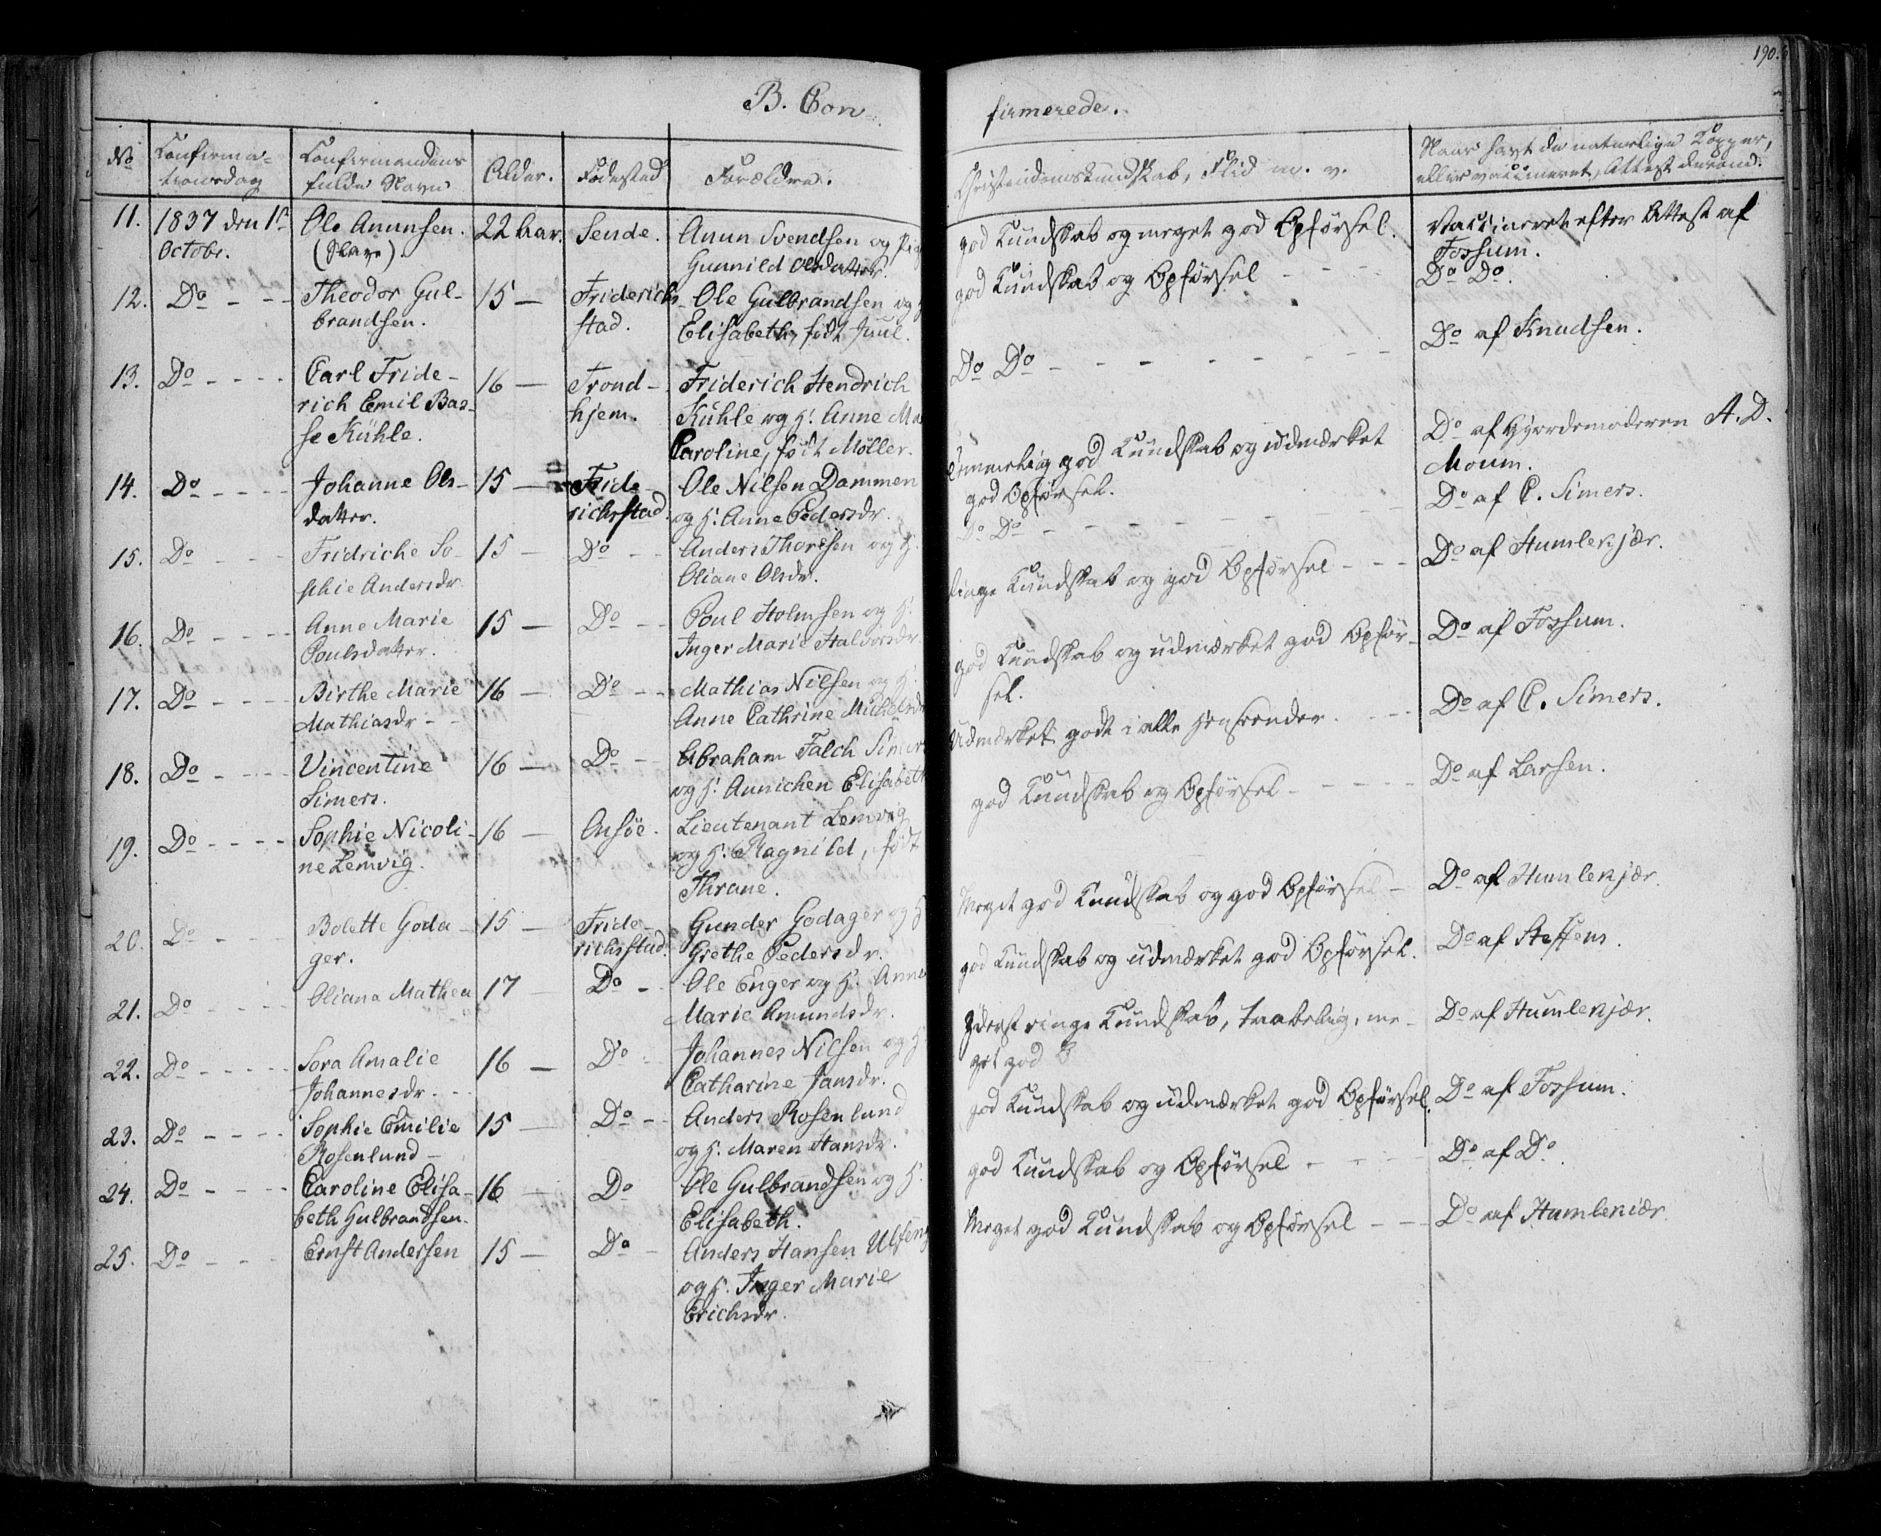 190.
B. Con-
firmerede.
No
Confirma-
tionsdag
Confirmandens
fulde Navn
Alder.
Fødested
Forældre.
Christendomskundskab, Flid m. v.
Naar havt de naturlige Kopper,
eller vaccineret, Attest derom.
11.
1837 den 1ste
Octobr.
Ole Anunsen.
(Slave)
22 Aar.
Sende.
Anun Svendsen og Pige
Gunnild Olsdatter.
god Kundskab og meget god Opførsel.
Vaccineret efter Attest af
Fossum.
12.
Do - - -
Theodor Gul-
brandsen.
15 —
Friderichs-
stad.
Ole Gulbrandsen og H.
Elisabeth, født Juul.
god Kundskab og Opførsel - - - -
Do Do.
13.
Do - - - -
Carl Fride-
rich Emil Bas-
se Kühle.
16 —
Trond-
hjem.
Friderich Hendrich
Kühle og H. Anne Ma
Caroline, født Møller.
Do Do - - - - - - - -
Do af Knudsen.
14.
Do - - - -
Johanne Ols-
datter.
15 —
Fride-
richsstad.
Ole Nilsen Dammen
og H. Anne Pedersdr.
Temmelig god Kundskab og udmærket
god Opførsel.
Do af Gjordemoderen A. D.
Moum.
15.
Do - - -
Fridriche So-
phie Andersdr
15 —
Do - -
Anders Thorsen og H.
Oliane Olsdr.
Do Do - - - - - - - -
Do af C. Simers.
16.
Do - - - -
Anne Marie
Poulsdatter.
15 —
Do - -
Poul Holmsen og H.
Inger Marie Halvorsdr
ringe Kundskab og god Opførsel - - -
Do af Humlekjær.
17.
Do - - - -
Birthe Marie
Mathiasdr - -
16 —
Do - -
Mathias Nilsen og H.
Anne Cathrine Michelsdr
god Kundskab og udmærket god Opfør-
sel.
Do af Fossum.
18.
Do - - - -
Vincentine
Simers.
16 —
Do - -
Abraham Falch Simers
og H. Annichen Elisabeth
Udmærket godt i alle Henseender. - - -
Do af C. Simers.
19.
Do - - - -
Sophie Nicoli-
ne Lemvig.
16 —
Onsøe.
Lieutenant Lemvig
og H. Ragnild, født
Thrane.
god Kundskab og Opførsel - - - - -
Do af Larsen.
20.
Do - - -
Bolette Goda-
ger.
15 —
Fride-
richsstad.
Gunder Godager og H
Grethe Pedersdr.
Meget god Kundskab og god Opførsel -
Do af Humlekjær.
21.
Do - - -
Oliana Mathea
17 —
Do -
Ole Enger og H. Anne
Marie Amundsdr.
god Kundskab og udmærket god Opførsel.
Do af Steffens.
22.
Do - - - - -
Sora Amalie
Johannesdr - -
16 —
Do -
Johannes Nilsen og H
Catharine Jansdr.
Yderst ringe Kundskab, taabelig, me-
get god O
Do af Humlekjær.
23.
Do - - - -
Sophie Emilie
Rosenlund -
15 —
Do - -
Anders Rosenlund
og H. Maren Hansdr.
god Kundskab og udmærket god Opførsel.
Do af Fossum.
24.
Do - - - -
Caroline Elisa-
beth Gulbrandsen.
16 —
Do
Ole Gulbrandsen og H.
Elisabeth.
god Kundskab og Opførsel - - - -
Do af Do
25.
Do - - -
Ernst Andersen
15 —
Do -
Anders Hansen
og H. Inger Marie
Erichsdr.
Meget god Kundskab og Opførsel - - -
Do af Humlekiær.